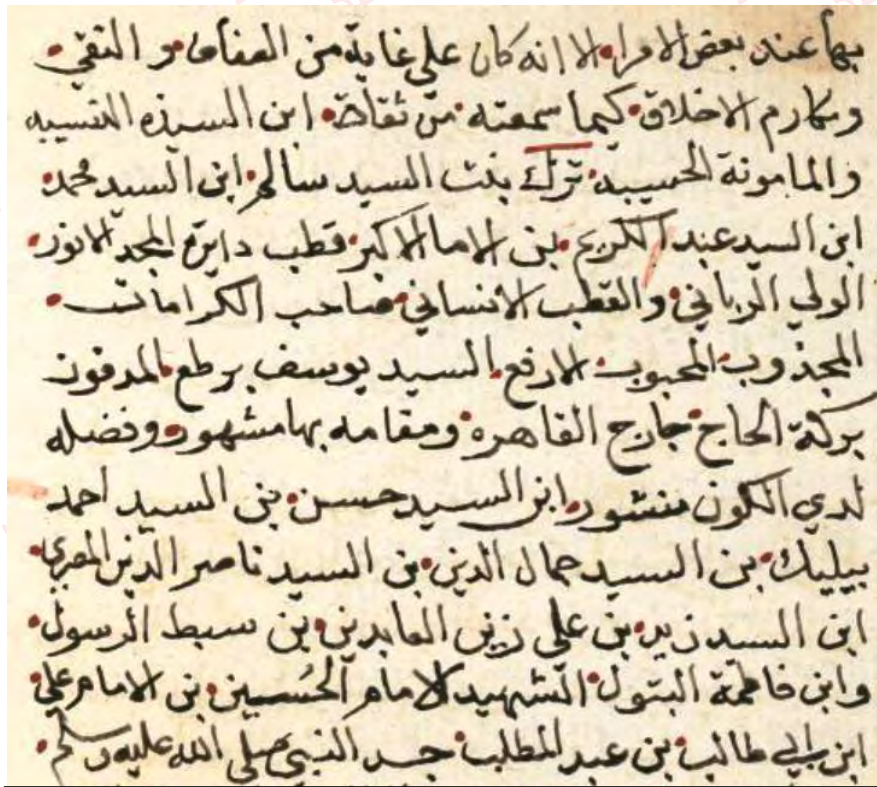 بها عند بعض الامراء الا انه كان علي غاية من العفاف و التقي
ومكارم الاخلاق كما سمعته من ثقاة ابن السيدة النسيبه
والمامونة الحسيبه ترك بنت السيد سالم ابن السيد محمد
ابن السيد عبد الكريم بن الامام الاكبر قطب دايرة المجد الانور
الولي الرباني والقطب الانساني صاحب الكرامات
المجذوب المحبوب الارفع السيد يوسف برطع المدفون
بركة الحاج خارج القاهره ومقامه بها مشهور وفضله
لدي الكون منشور ابن السيد حسن بن السيد احمد
بيليك بن السيد جمال الدين بن السيد ناصر الدين
ابن السيد زيد بن علي زين العابدين بن سبط الرسول
وابن فاطمة البتول الشهيد الامام الحُسين بن الامام علي
ابن ابي طالب بن عبد المطلب جد النبي صلي الله عليه وسلم